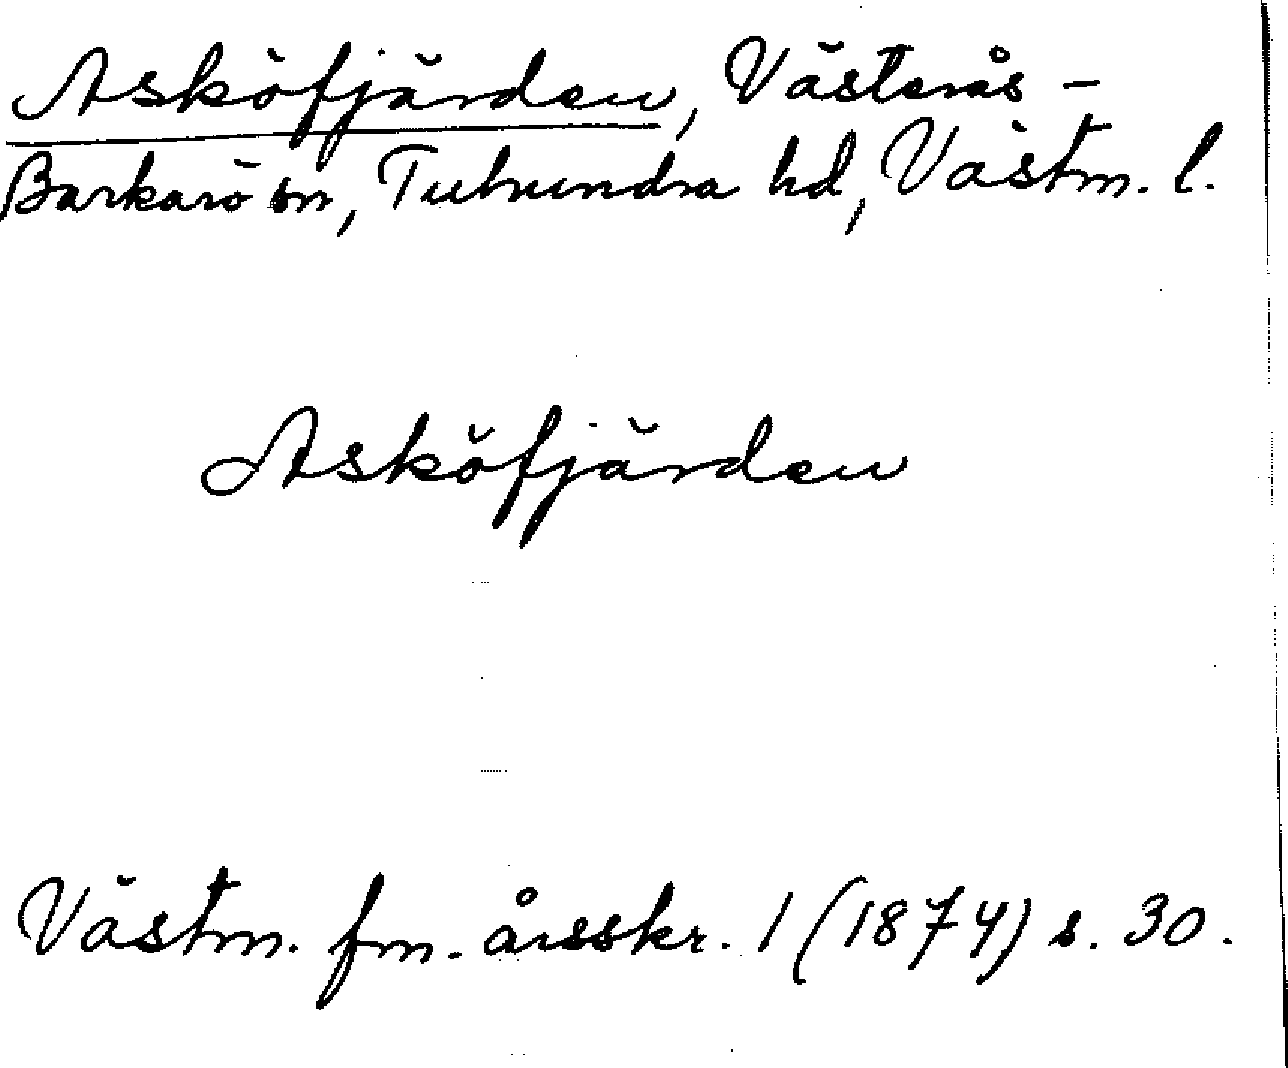 Asköfjärden, Västerås-
Barkarö sn, Tuhundra hd, Västm. l.
Asköfjärden
Västm. fm. årsskr. 1 (1874) s. 30.